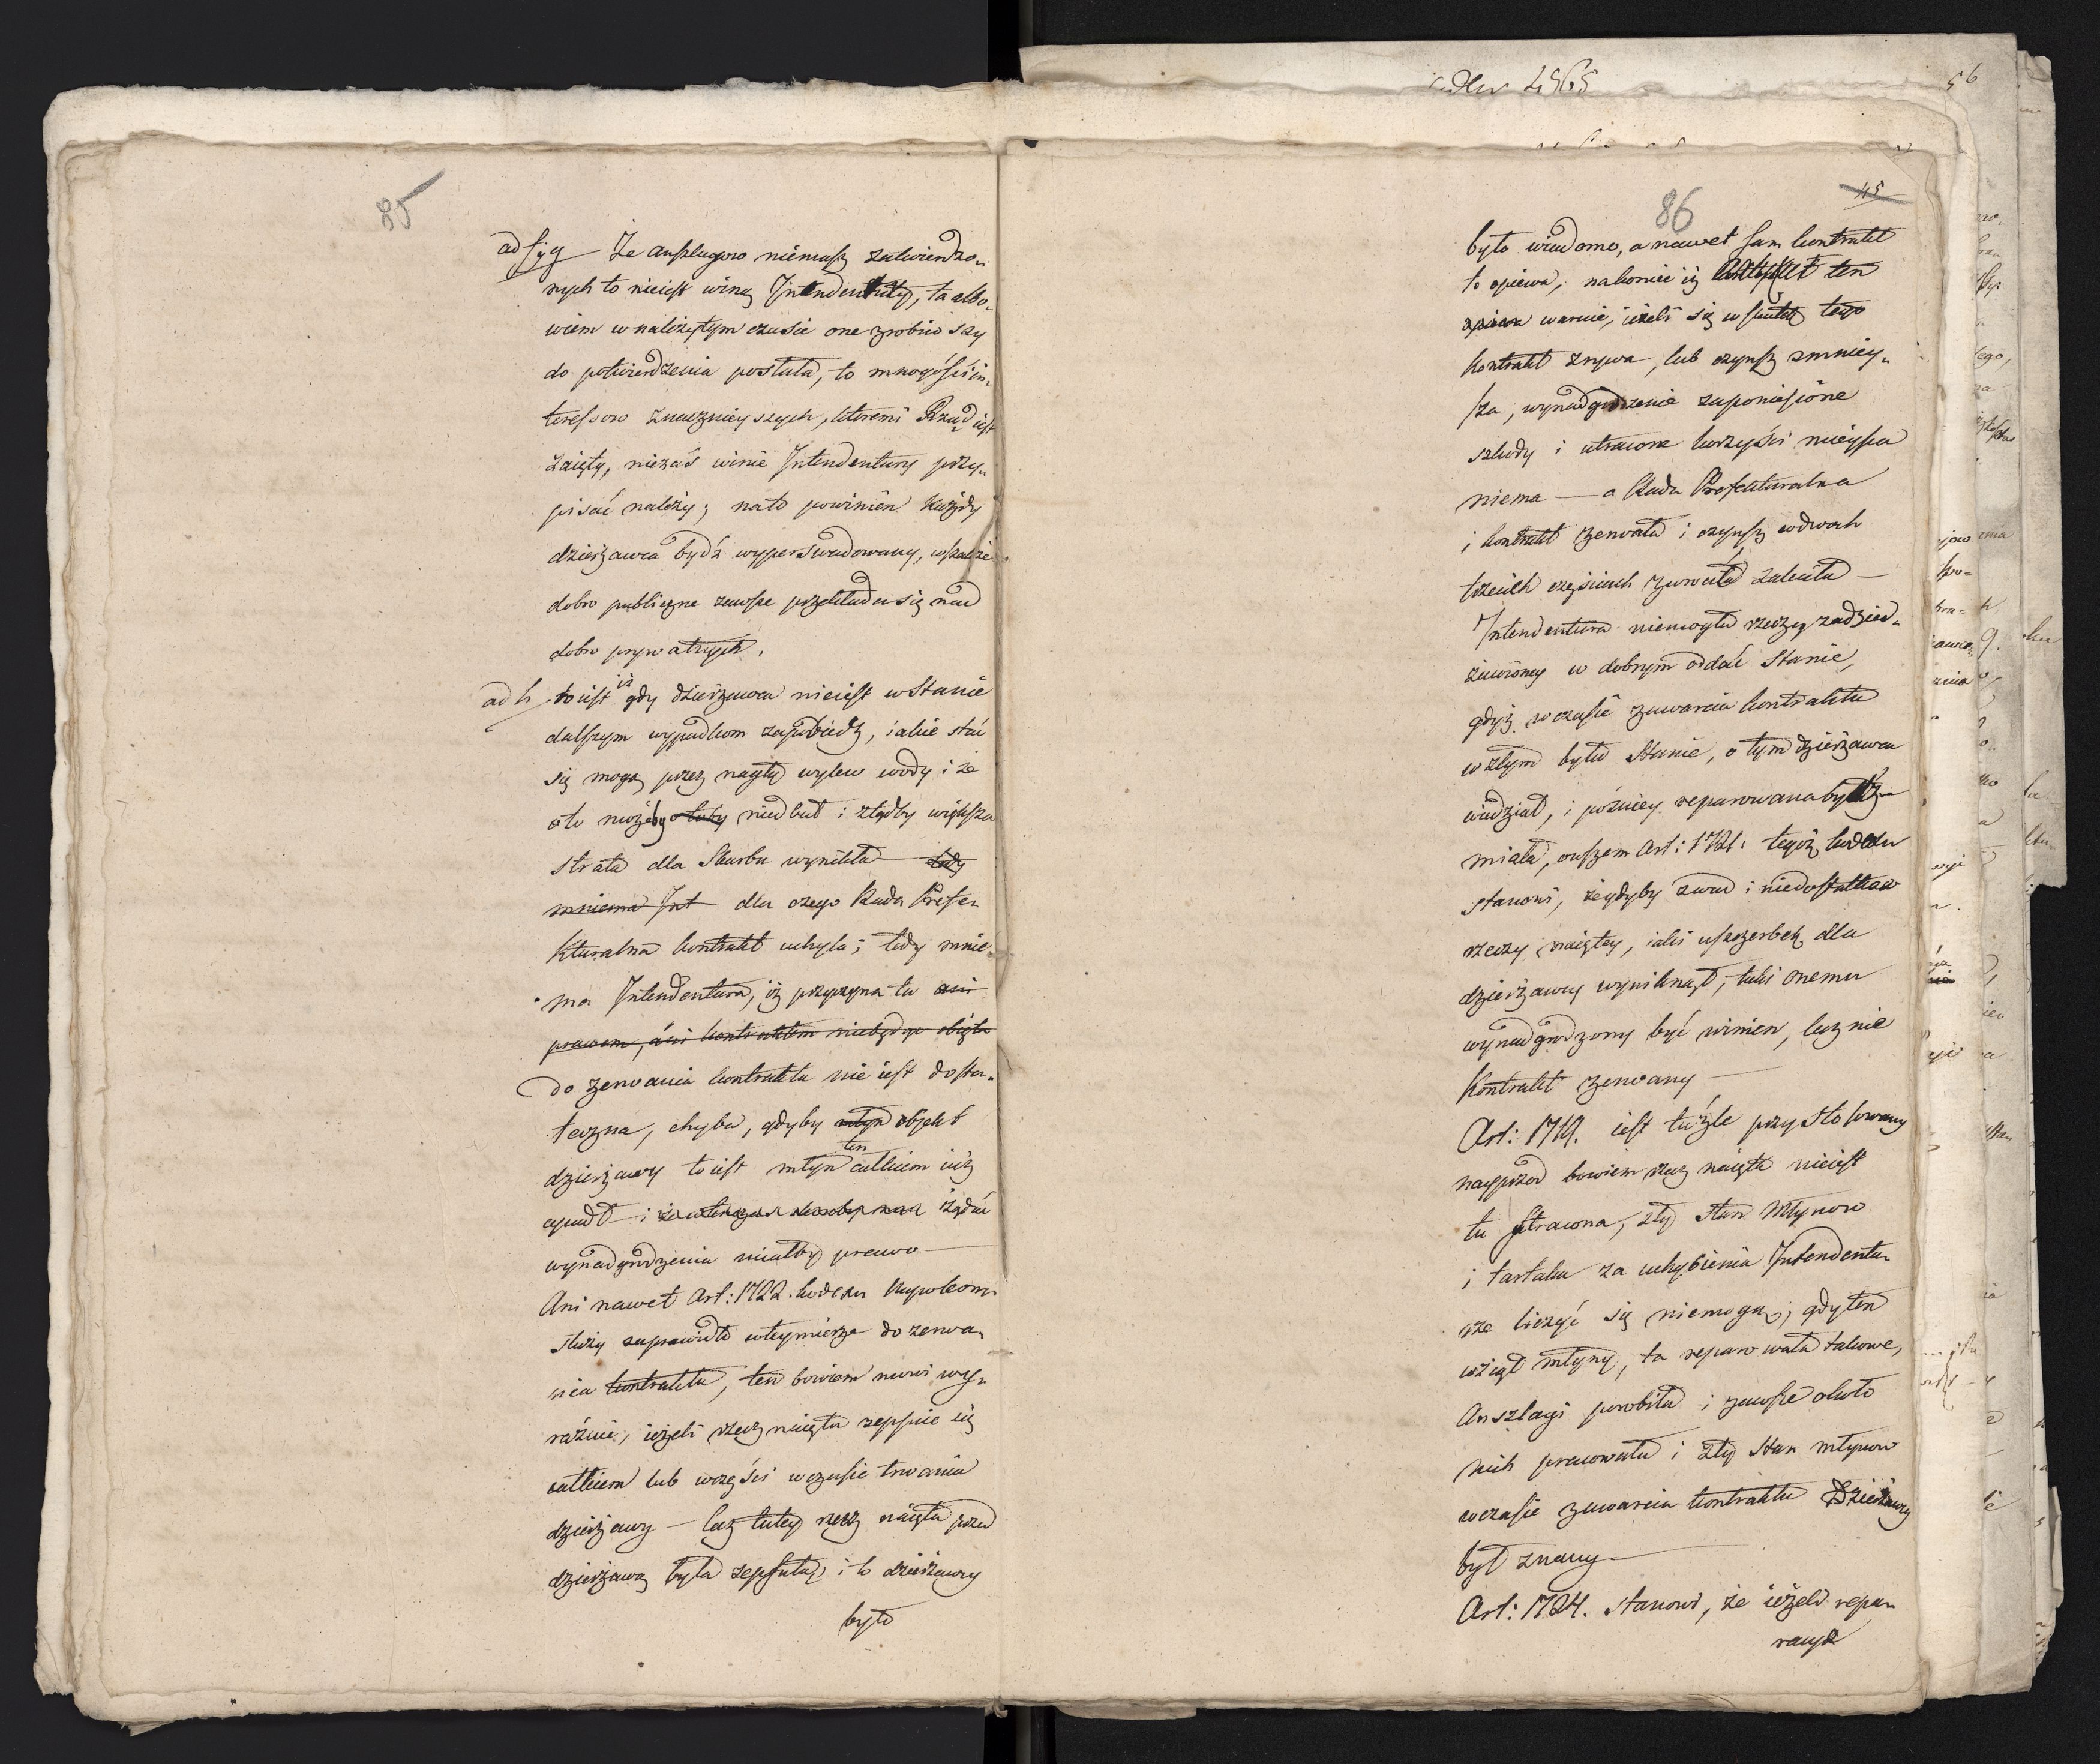 85
ad f y g Ze anszlagow niemasz zatwierdzo„
nych to nieiest winą Intendentury, ta albo„
wiem w należytym czasie one zrobiwszy
do potwierdzenia posłała, to mnogości in„
teressow znacznieyszych, któremi Rząd iest
zaięty, niezaś winie Intendentury przy„
pisać należy; nato powinien każdy
dzierżawca bydź wyperswadowany, wszakże
dobro publiczne zawsze przekłada się nad
dobro prywatnych.
ad h to iest iż gdy dzierżawca nieiest w stanie
dalszym wypadkom zapobiedz, iakie stać
się mogą przez nagły wylew wody i że
oto możeby niedbał i ztądby większa
strata dla Skarbu wynikła tedy
mniema Int dla czego Rada Prefe„
kturalna kontrakt uchyla; tedy mnie„
ma Intendentura, iż przyczyna ta ani
prawem, ani kontraktem niebędąc obięta
do zerwania kontraktu nie iest dosta„
teczna, chyba, gdyby młyn objekt
dzierżawy to iest młyn ten całkiem iuż
upadł i żądać
wynadgrodzenia miałby prawo —
Ani nawet Art: 1722. kodexu Napoleona
służy zaprawidło wteymierze do zerwa„
nia kontraktu, ten bowiem mowi wy„
raźnie, ieżeli rzecz naięta zepsuie się
całkiem lub wczęści wczasie trwania
dzierżawy — lecz tutey rzecz naięta przed
dzierżawą była zepsutą, i to dzierżawcy
było
45
86
było wiadomo, a nawet sam kontrakt
to opiewa, nakoniec iż ten
warnie, ieżeli się w skutek tego
kontrakt zrywa, lub czynsz zmniey„
sza, wynadgrodzenie zaponiesione
szkody i utracone korzyści mieysca
niema — a Rada Prefekturalna
i kontrakt zerwała i czynsz wdwoch
trzecich częściach zwrócić zaleciła —
Intendentura niemogła rzeczy zadzier„
żawioney w dobrym oddać stanie,
gdyż wczasie zawarcia kontraktu
wzłym była stanie, o tym dzierżawca
wiedział, i pózniey reparowana bydź
miała, owszem Art: 1721: tegoż kodexu
stanowi, żegdyby zwad i niedostatkow
rzeczy naiętey, iaki uszczerbek dla
dzierżawcy wyniknął, taki onemu
wynadgrodzony być winien, lecz nie
kontrakt zerwany —
Art: 1719. iest tu źle przystosowany
nayprzod bowiem rzecz naięta nieiest
tu stracona, zły stan młynow
i tartaku za uchybienia Intendentu„
rze liczyć się niemogą; gdy ten
wziął młyny, ta reparowała takowe,
Anszlagi porobiła i zawsze około
nich pracowała i zły stan młynow
wczasie zawarcia kontraktu Dzierżawcy
był znany —
Art: 1724. stanowi, że ieżeli repa„
racye